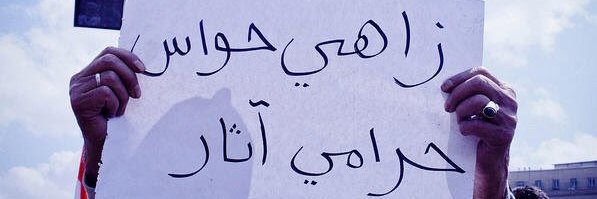 زاهي حواس
حرامي آثار